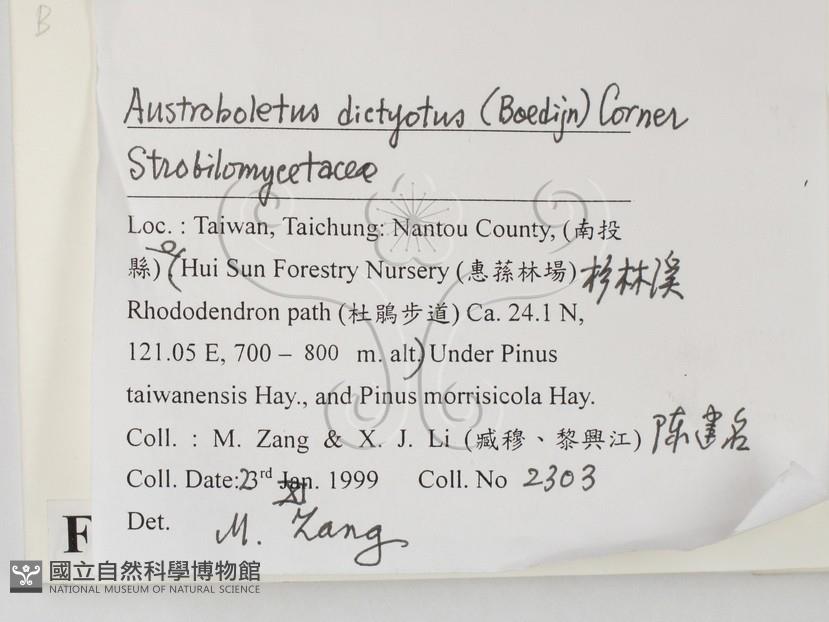 B
Austroboletus dictyotus (Boedijn) Corner
Strobilomycetaceae
Loc. : Taiwan, Taichung: Nantou County, (南投
縣) (Hui Sun Forestry Nursery (惠蓀林場) 杉林溪
Rhododendron path (杜鵑步道) Ca. 24.1 N,
121.05 E, 700 – 800 m. alt.) Under Pinus
taiwanensis Hay., and Pinus morrisicola Hay.
Coll. : M. Zang & X. J. Li (臧穆、黎興江) 陈建名
Coll. Date: 23rd Jan. XI 1999 Coll. No 2303
Det. M. Zang
F
國立自然科學博物館
NATIONAL MUSEUM OF NATURAL SCIENCE